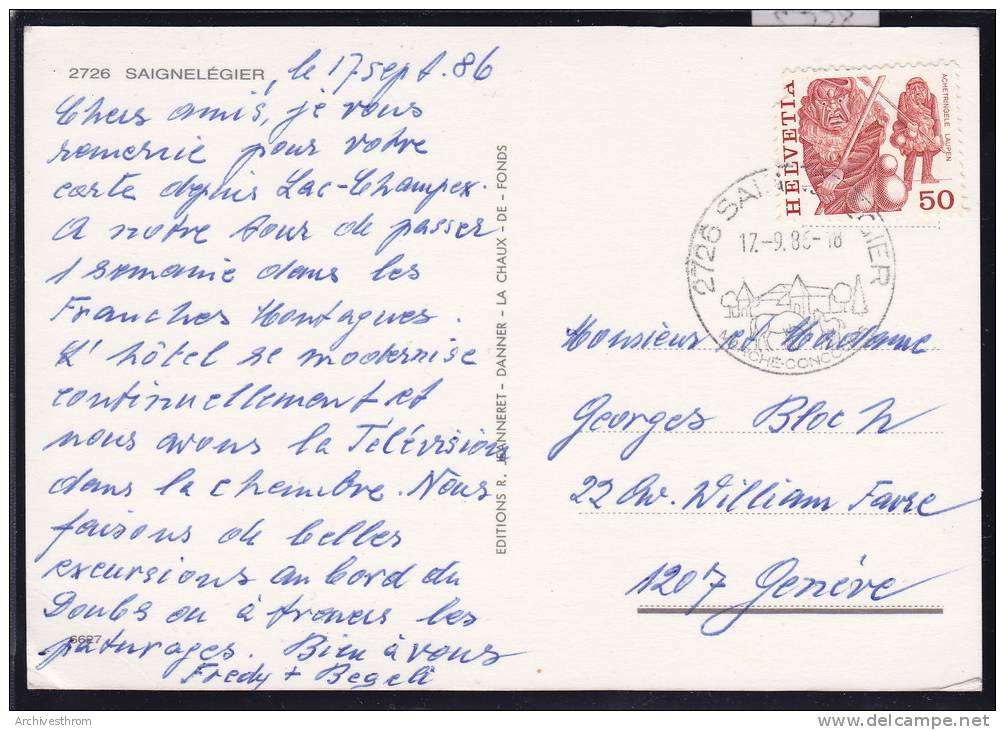 2726 SAIGNELÉGIER, le 17 sept. 86
Chers amis, je vous
remercie pour votre
carte depuis Lac-Champex.
A notre tour de passer
1 semaine dans les
Franches Montagnes.
L'hôtel se modernise
continuellement et
nous avons la Télévision
dans la chambre. Nous
faisons de belles
excursions au bord du
Doubs ou à travers les
6627
paturages. Bien à vous
Fredy +
EDITIONS R. JEANNERET - DANNER - LA CHAUX - DE - FONDS
HELVETIA
ACHETRINGELE LAUPEN
50
2726 SAIGNELÉGIER
17.-9.86-18
MARCHÉ-CONCOURS
Monsieur et Madame
Georges Bloch
22 Av. William Favre
1207 Genève
Archivesthrom
delcampe.net